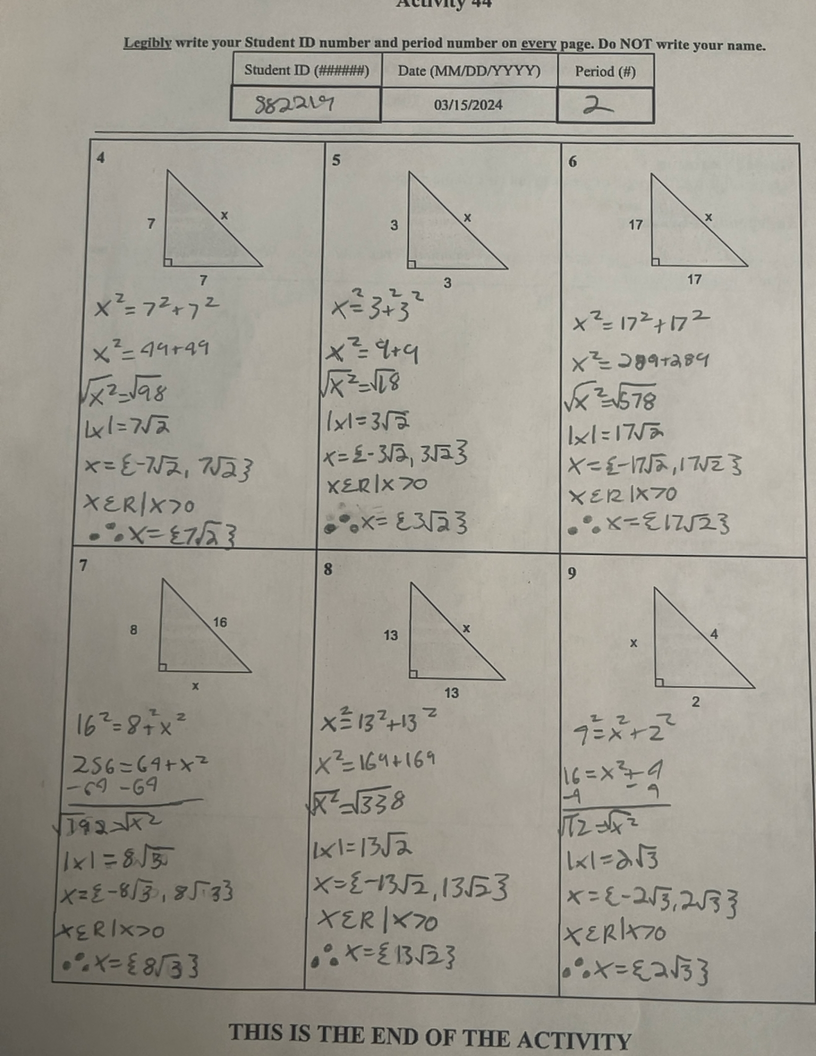 Activity 44
Legibly write your Student ID number and period number on every page. Do NOT write your name.
Student ID (######) Date (MM/DD/YYYY) Period (#)
882219 03/15/2024 2
4
7
x
7
x²=7²+7²
x²=49+49
√x²=√98
|x|=7√2
x={-7√2, 7√2}
xεR|x>0
∴x={7√2}
5
3
x
3
x²=3²+3²
x²=9+9
√x²=√18
|x|=3√2
x={-3√2, 3√2}
xεR|x>0
∴x={3√2}
6
17
x
17
x²=17²+17²
x²=289+289
√x²=√578
|x|=17√2
x={-17√2, 17√2}
xεR|x>0
∴x={17√2}
7
8
16
x
16²=8²+x²
256=64+x²
-64 -64
√192=√x²
|x|=8√3
x={-8√3, 8√3}
xεR|x>0
∴x={8√3}
8
13
x
13
x²=13²+13²
x²=169+169
√x²=√338
|x|=13√2
x={-13√2, 13√2}
xεR|x>0
∴x={13√2}
9
x
4
2
4²=x²+2²
16=x²+4
-4 -4
√12=√x²
|x|=2√3
x={-2√3, 2√3}
xεR|x>0
∴x={2√3}
THIS IS THE END OF THE ACTIVITY